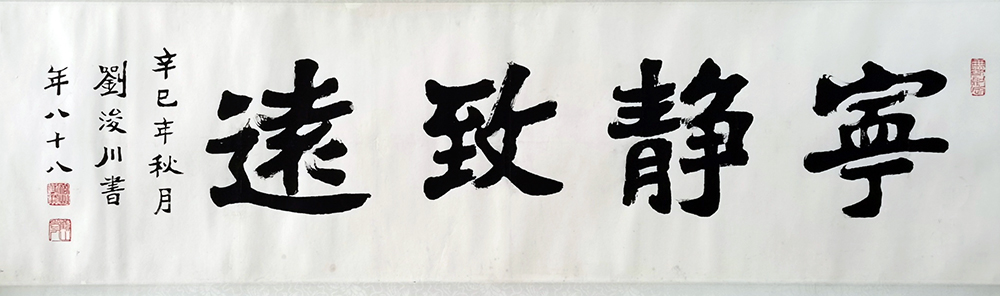 寧静致遠
辛巳年秋月
劉浚川書
年八十八